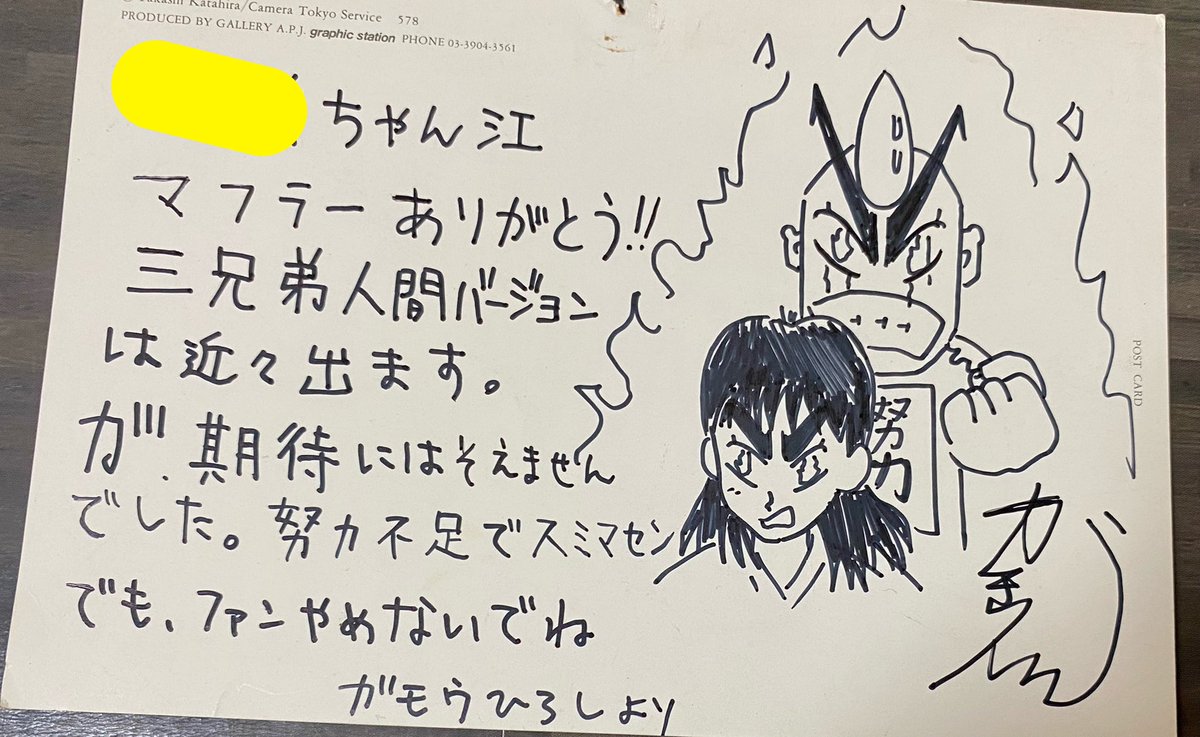 Takashi Katahira/Camera Tokyo Service 578
PRODUCED BY GALLERY A.P.J. graphic station PHONE 03-3904-3561
ちゃん江
マフラーありがとう!!
三兄弟人間バージョン
は近々出ます。
が、期待にはそえません
でした。努力不足でスミマセン
でも、ファンやめないでね
ガモウひろしより
努力
POST CARD